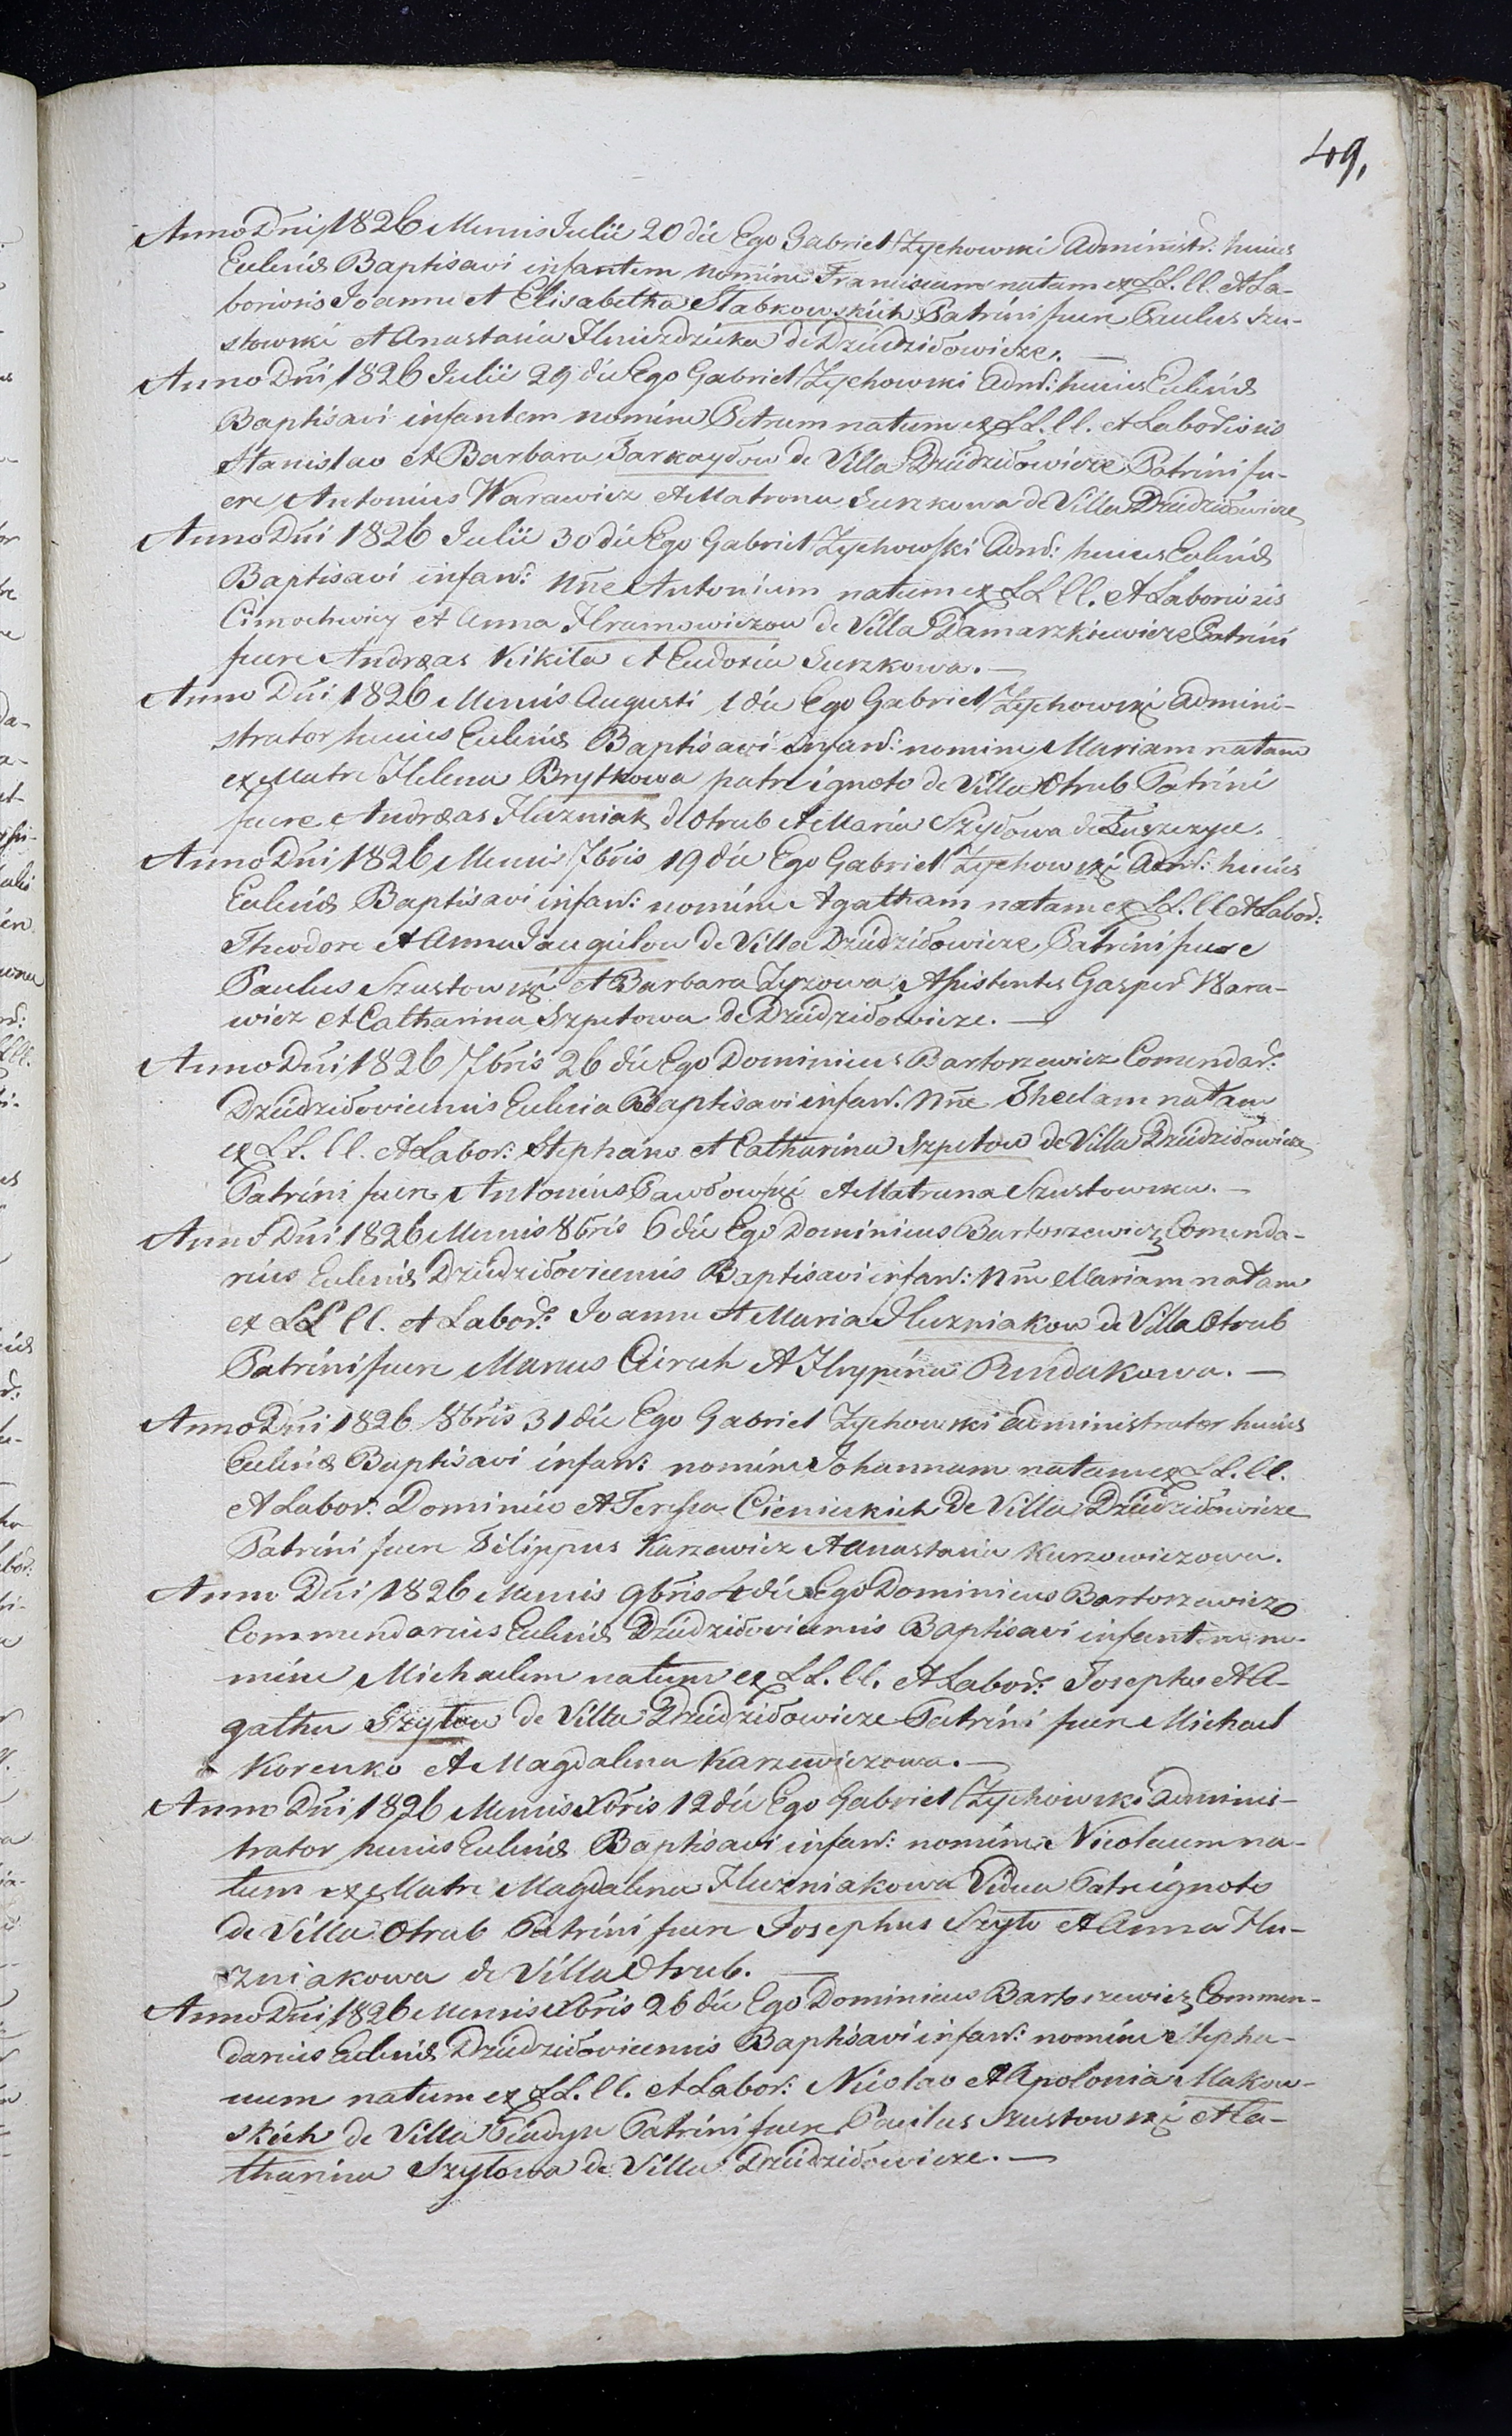 49.
Anno Dni 1826 Mensis Julii 20 die Ego Gabriel Zychowski Administr: huius
Eccleniæ Baptisavi infantem nomine Franciscam natam ex LL. ll. et La-
boriosis Joanne et Elisabetha Słabkowskich Patrini fuere Paulus Szu-
stowski et Anastasia Hniezdzicka de Dziudziłowicze. —
Anno Dni 1826 Julii 29 die Ego Gabriel Zychowski Admr: huius Eccliæ
Baptisavi infantem nomine Petrum natum ex LL. ll. et Laboriosis
Stanislao et Barbara de Villa Dziudziłowicze Patrini fu-
ere Antonius Warawicz et Matrona Surzkowa de Villa Dziudziłowicze
Anno Dni 1826 Julii 30 die Ego Gabriel Zychowski Admr: huius Eccliæ
Baptisavi infan: Nne Antonium natum ex LL ll. et Laboriosis
et Anna Hramowiczow de Villa Damarzkiewicze Patrini
fuere Andreas Nikita et Eudoxia Surzkowa. —
Anno Dni 1826 Mensis Augusti 1 die Ego Gabriel Zychowski Admini-
strator huius Eccliæ Baptisavi infan: nomine Mariam natam
ex Matre Helena Brytkowa patre ignoto de Villa Otrub Patrini
fuere Andreas Huzniak de Otrub et Maria Szydowa de
Anno Dni 1826 Mensis 7bris 19 die Ego Gabriel Zychowski Admr: huius
Eccliæ Baptisavi infan: nomine Agatham natam ex LL. ll et Labor:
Theodore et Anna Jaugiłow de Villa Dziudziłowicze Patrini fuere
Paulus Szustowski et Barbara Zyzowa Assistentes Gasper Wara-
wicz et Catharina Szpetowa de Dziudziłowicze. —
Anno Dni 1826 7bris 26 die Ego Dominicus Bartoszewicz Comendar:
Dziudziłovicensis Ecclesia Baptisavi infan: Nne Theclam natam
ex LL. ll. et Labor: Stephano et Catharina Szpetow de Villa Dziudziłowicze
Patrini fuere Antonius Pawłowski et Matruna Szustowska. —
Anno Dni 1826 Mensis 8bris 6 die Ego Dominicus Bartoszewicz Comenda-
rius Eccliæ Dziudziłovicensis Baptisavi infan: Nne Mariam natam
ex LL ll. et Labor: Joanne et Maria Huzniakow de Villa Otrub
Patrini fuere Manus et Hrypina Rudakowa. —
Anno Dni 1826 8bris 31 die Ego Gabriel Zychowski administrator huius
Eccliæ Baptisavi infan: nomine Johannam natam ex LL. ll.
et Labor: Dominico et Teressa Cieniuskich de Villa Dziudziłowicze
Patrini fuere Filippus Karzewicz et Anastasia Karzewiczowa.
Anno Dni 1826 Mensis 9bris 4 die Ego Dominicus Bartoszewicz
Commendarius Eccliæ Dziudziłovicensis Baptisavi infantem no-
mine Michaelem natum ex LL. ll. et Labor: Josephus et A-
gatha Szytow de Villa Dziudziłowicze Patrini fuere Michael
Korenko et Magdalena Karzewiczowa. —
Anno Dni 1826 Mensis Xbris 12 die Ego Gabriel Zychowski adminis-
trator huius Eccliæ Baptisavi infan: nomine Nicolaum na-
tum ex Matre Magdalena Huzniakowa Vidua Patre ignoto
de Villa Otrub Patrini fuere Josephus Szyto et Anna Hu-
zniakowa de Villa Otrub. —
Anno Dni 1826 Mensis Xbris 26 die Ego Dominicus Bartoszewicz Commen-
darius Eccliæ Dziudziłovicensis Baptisavi infan: nomine Stepha-
num natum ex LL. ll. et Labor: Nicolao et Apolonia Makow-
skich de Villa Patrini fuere Paulus Szustowski et Ca-
tharina Szytowa de Villa Dziudziłowicze. —